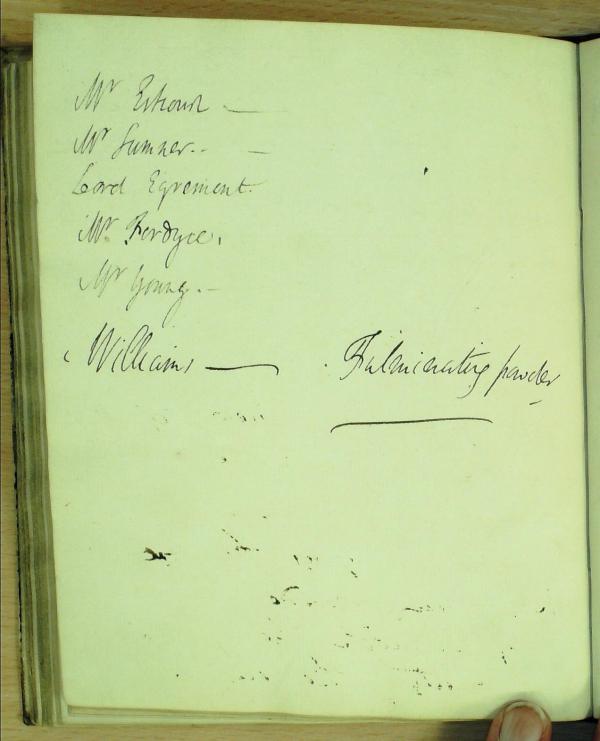 Mr Estcourt —
Mr Sumner.. —
Lord Egremont.
Mr Fordyce.
Mr Young. —
Williams — Fulminating powder